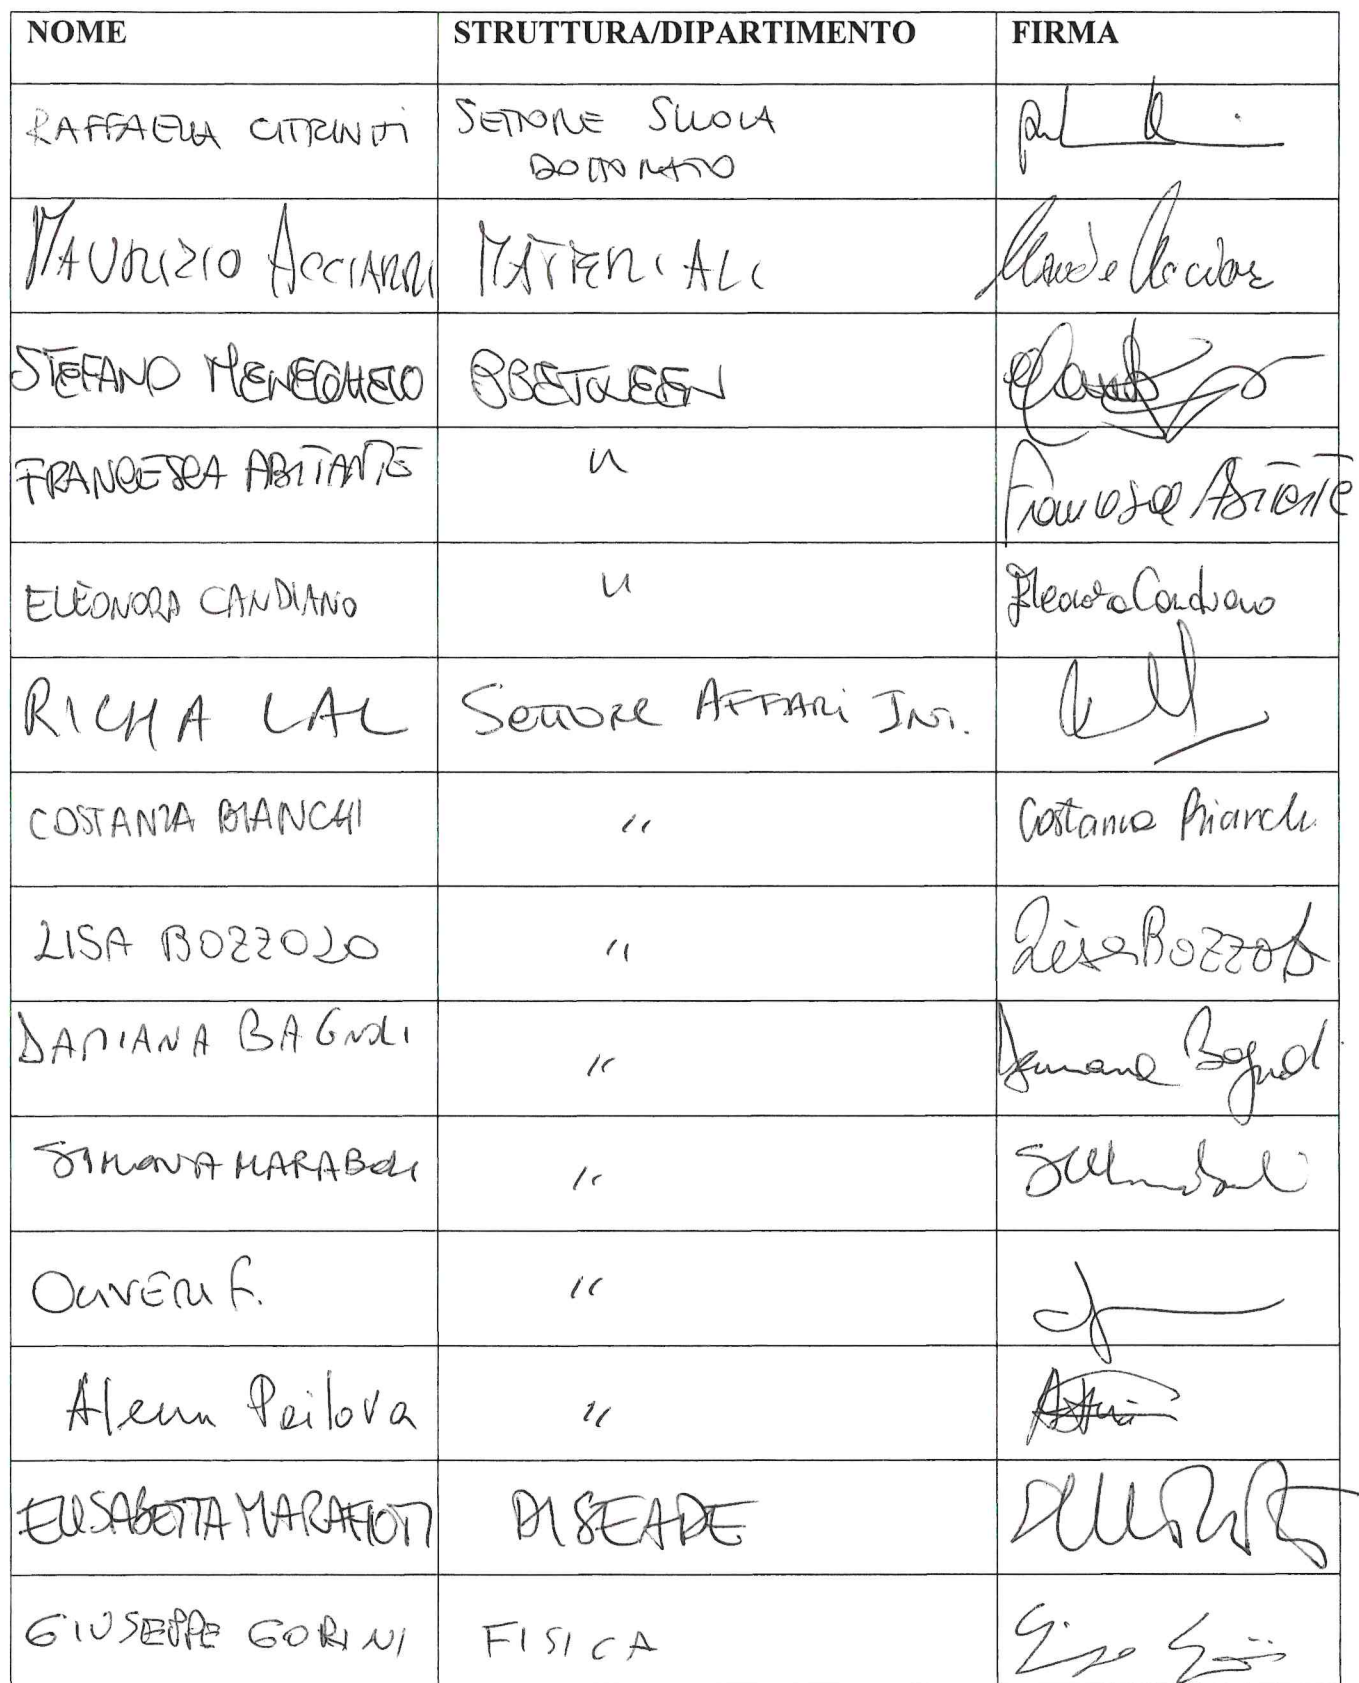 NOME STRUTTURA/DIPARTIMENTO FIRMA
RAFFAELLA CITRINITI SETTORE SCUOLA
DOTTORATO
MAURIZIO ACCIARRI MATERIALI
STEFANO MENEGHELLO BBETWEEN
FRANCESCA ABITANTE " Francesca Abitante
ELEONORA CANDIANO " Eleonora Candiano
RICHA LAL SETTORE AFFARI INT.
COSTANZA BIANCHI " Costanza Bianchi
LISA BOZZOLO " Lisa Bozzolo
DAMIANA BAGNOLI " Damiana Bagnoli
SIMONA MARABOLI "
OLIVERI F. "
Alena Peilova "
ELISABETTA MARAFIOTI DISEADE
GIUSEPPE GORINI FISICA